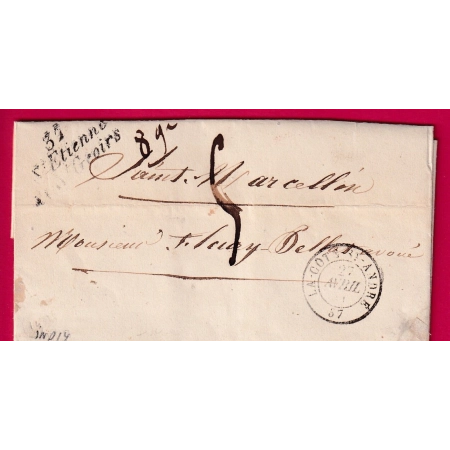 37
St Etienne
8 gr
5
Saint-Marcellin
Monsieur Fleury-Belle avoué
LA-COTE-ST-ANDRE
27
AVRIL
37
IND 14